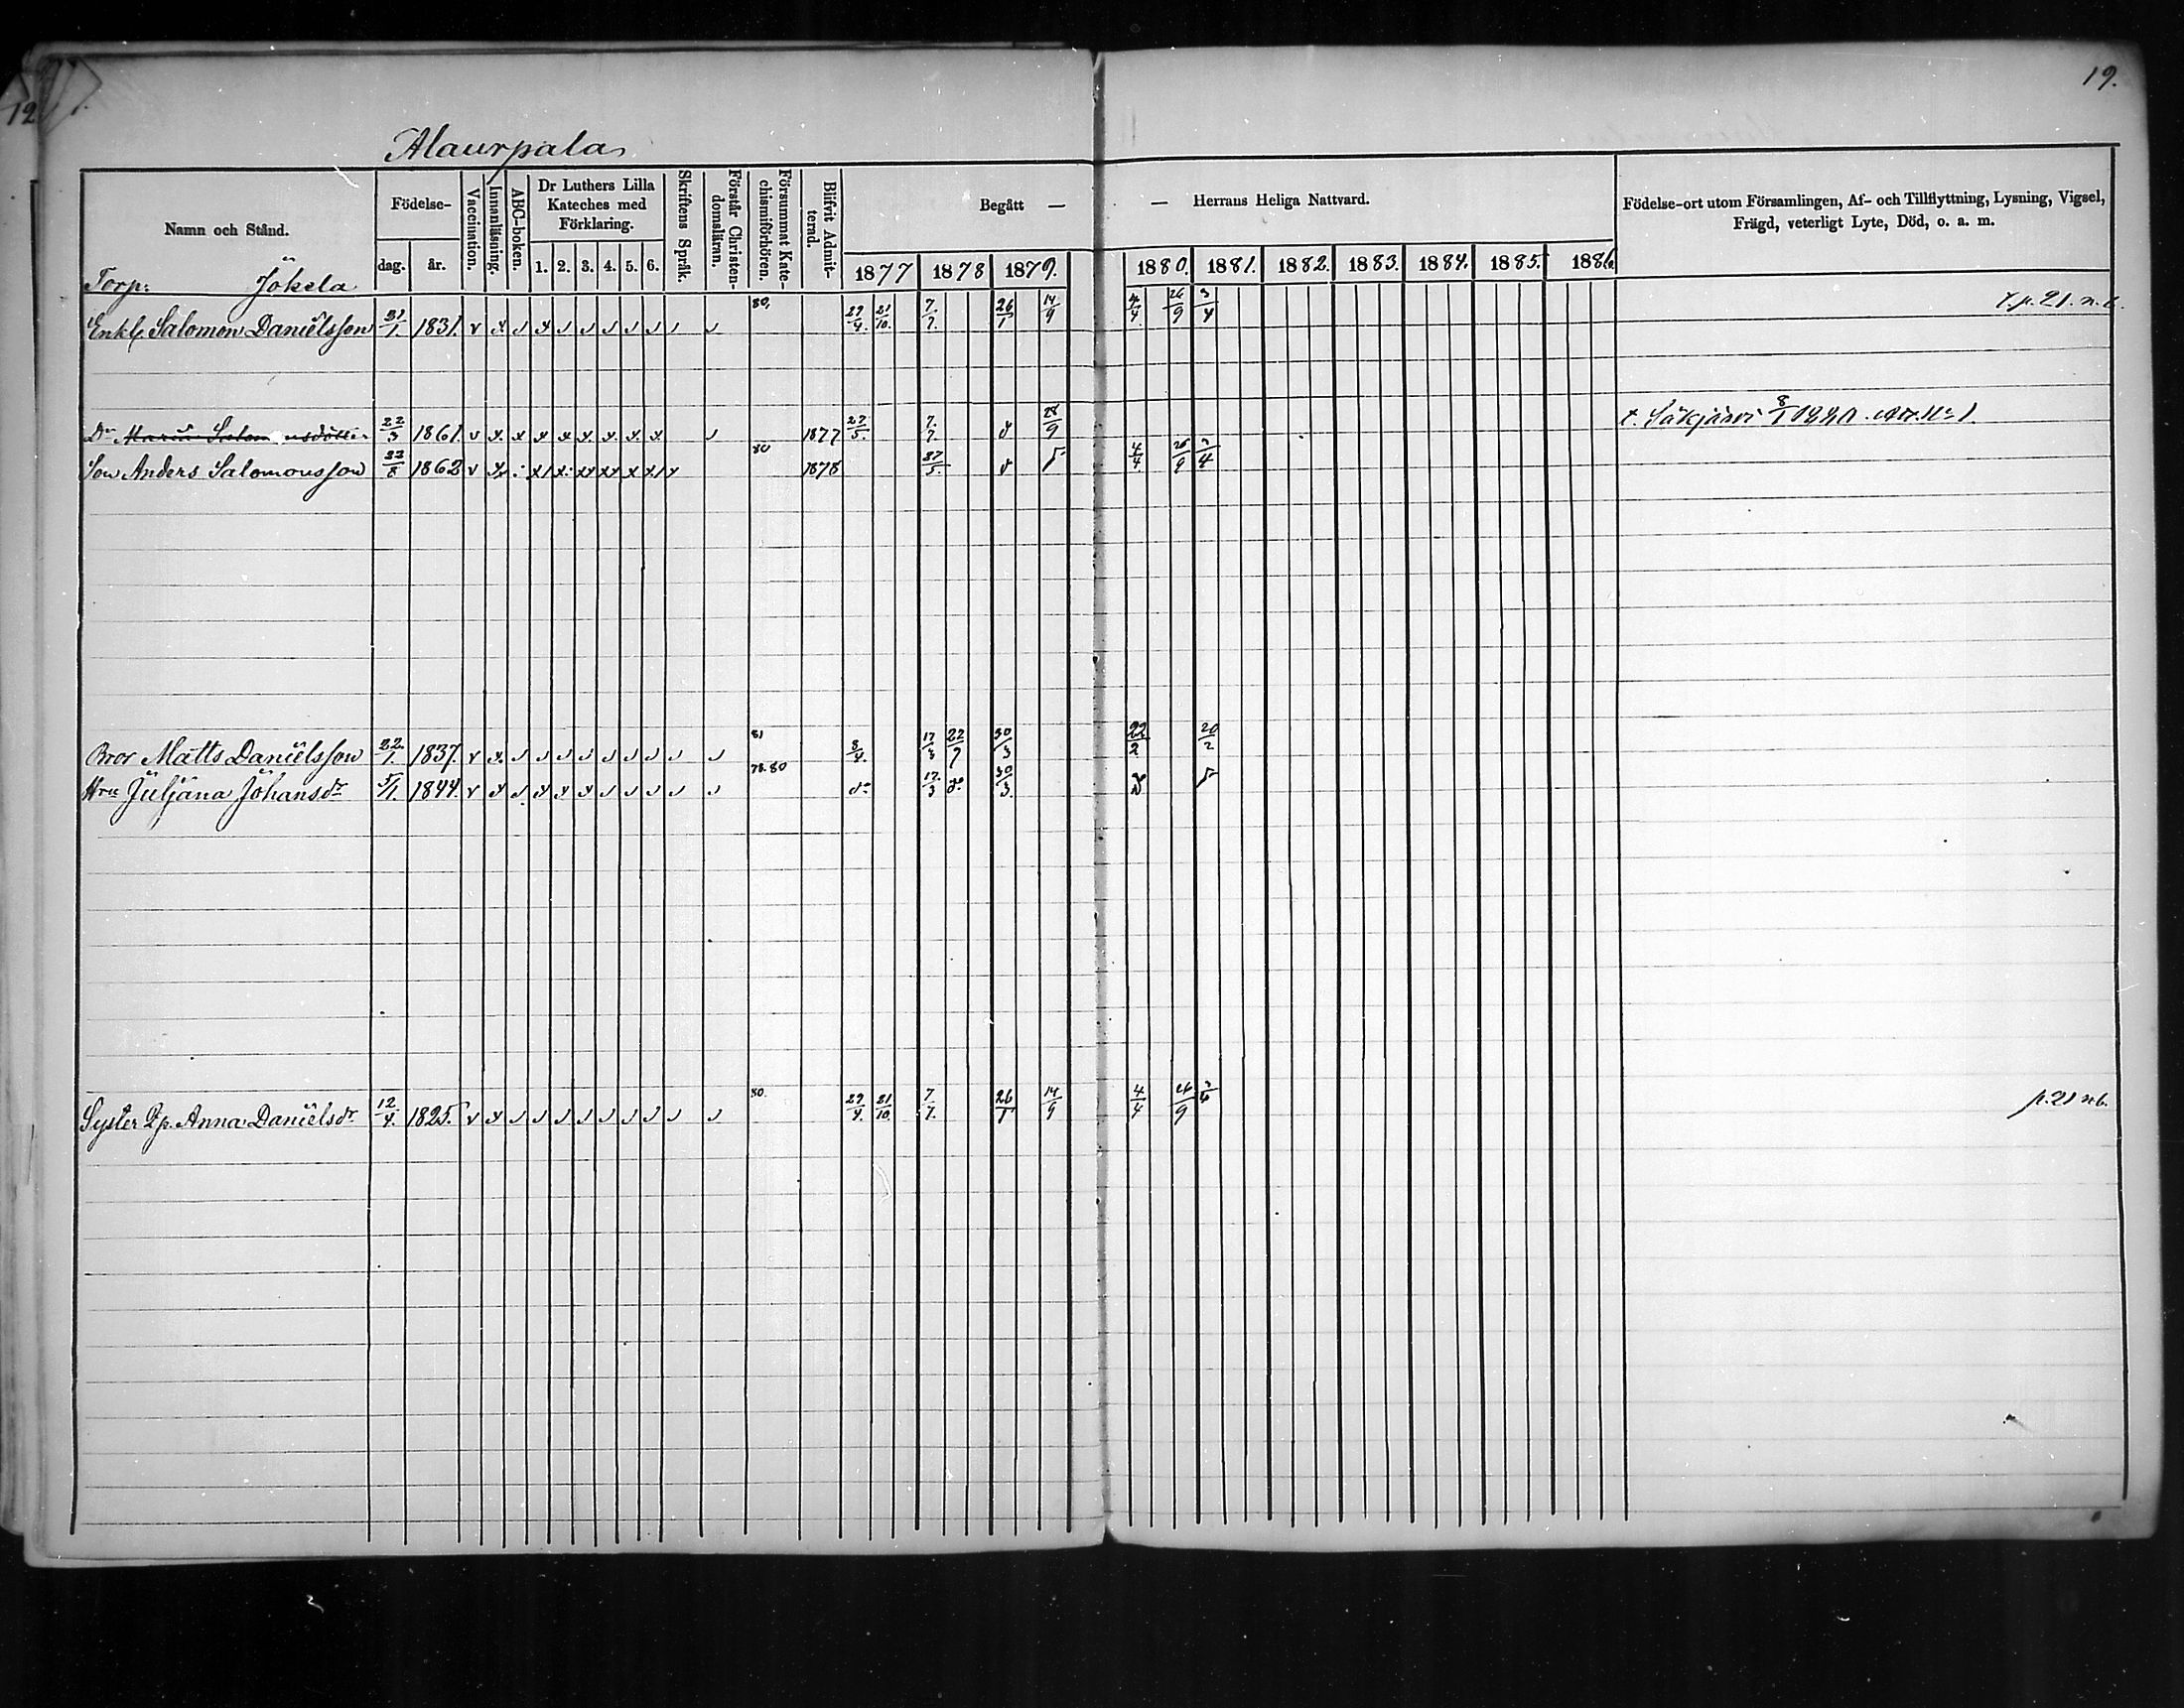 19.
12
Alaurpala
Namn och Stånd.
Födelse-
dag.
år.
Vaccination.
Innanläsning.
ABC-boken.
Dr Luthers Lilla Kateches med Förklaring.
1. 2. 3. 4. 5. 6.
Skriftens Språk.
Förstår Christendomsläran.
Försummat Katechismiförhören.
Blifvit Admitterad.
Begått —
— Herrans Heliga Nattvard.
1877 1878 1879. 1880. 1881. 1882. 1883. 1884. 1885. 1886.
Födelse-ort utom Församlingen, Af- och Tillflyttning, Lysning, Vigsel,
Frägd, veterligt Lyte, Död, o. a. m.
Torp: Jokela
Enkl. Salomon Danielsson 31/1. 1831. v 80. 29/4. 21/10. 7/7. 26/1 14/9 4/4. 26/9 3/4 p. 21. n. 6.
Dr Maria Salomonsdotter 22/3 1861. v 1877 27/5. 7/7. 28/9 t. Säkjärvi 8/1
Son Anders Salomonsson 1862 v 80 1878 27/5. 4/4. 26/9 3/4
Bror Matts Danielsson 22./1. 1837. v 81 8/4. 17/3 22/7 30/3 22/2 20/2
Hru Juljana Johansdr 5/1. 1844. v 78. 80 do 17/3 do 30/3.
Syster Anna Danielsdr 12/4. 1825. v 80. 29/4. 21/10. 7/7. 26/1 14/9 4/4 26/9 p. 21 n 6.